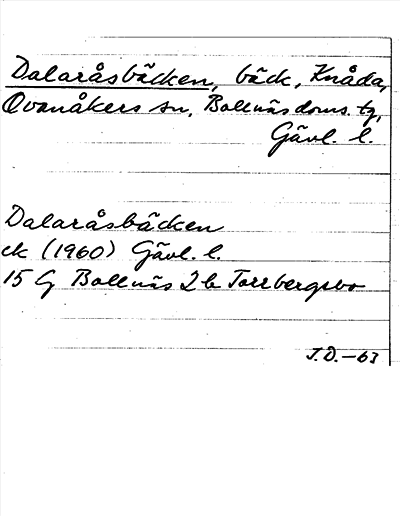 Dalaråsbäcken, bäck, Knåda,
Ovanåkers sn, Bollnäs doms. tg,
Gävl. l.
Dalaråsbäcken
ek (1960) Gävl. l.
15 G Bollnäs 2 b Torrbergsbo
J.D.-63